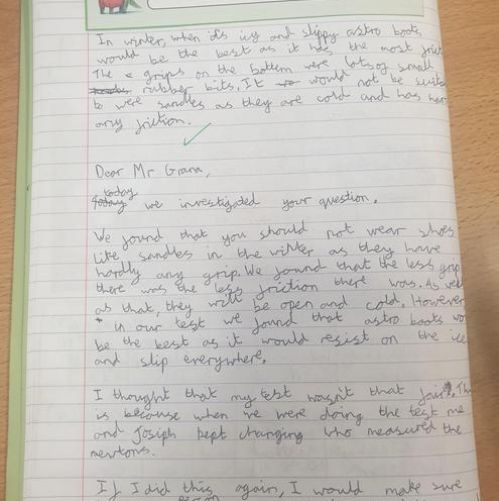 In winter, when it's icy and slippy astro boots
would be the best as it has the most frict
The grips on the bottom were lots of small
rubber bits, It would not be suite
to were sandles as they are cold and has har
any friction.
Dear Mr Grana,
today we investigated your question.
We found that you should not wear shoes
like sandles in the winter as they have
hardly any grip. We found that the less grip
there was the less friction there was. As well
as that, they will be open and cold. However
in our test we found that astro boots wo
be the best as it would resist on the ice
and slip everywhere.
I thought that my test wasn't that fair. Thi
is because when we were doing the test me
and Joseph kept changing who measured the
newtons.
If I did this again, I would make sure